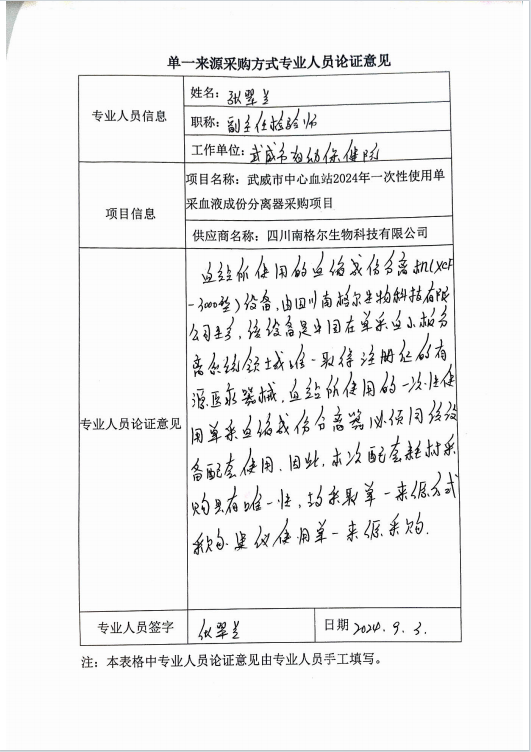 单一来源采购方式专业人员论证意见
专业人员信息
姓名：张翠兰
职称：副主任检验师
工作单位：武威市妇幼保健院
项目信息
项目名称：武威市中心血站2024年一次性使用单
采血液成份分离器采购项目
供应商名称：四川南格尔生物科技有限公司
专业人员论证意见
血站所使用的血液成份分离机（XCF
-3000型）设备，由四川南格尔生物科技有限
公司生产，该设备是中国在单采血小板分
离系统领域唯一取得注册证的有
源医疗器械，血站所使用的一次性使
用单采血液成份分离器必须同该设
备配套使用，因此，本次配套耗材采
购具有唯一性，故采取单一来源方式
采购。建议使用单一来源采购.
专业人员签字
张翠兰
日期 2024. 9. 3.
注：本表格中专业人员论证意见由专业人员手工填写。